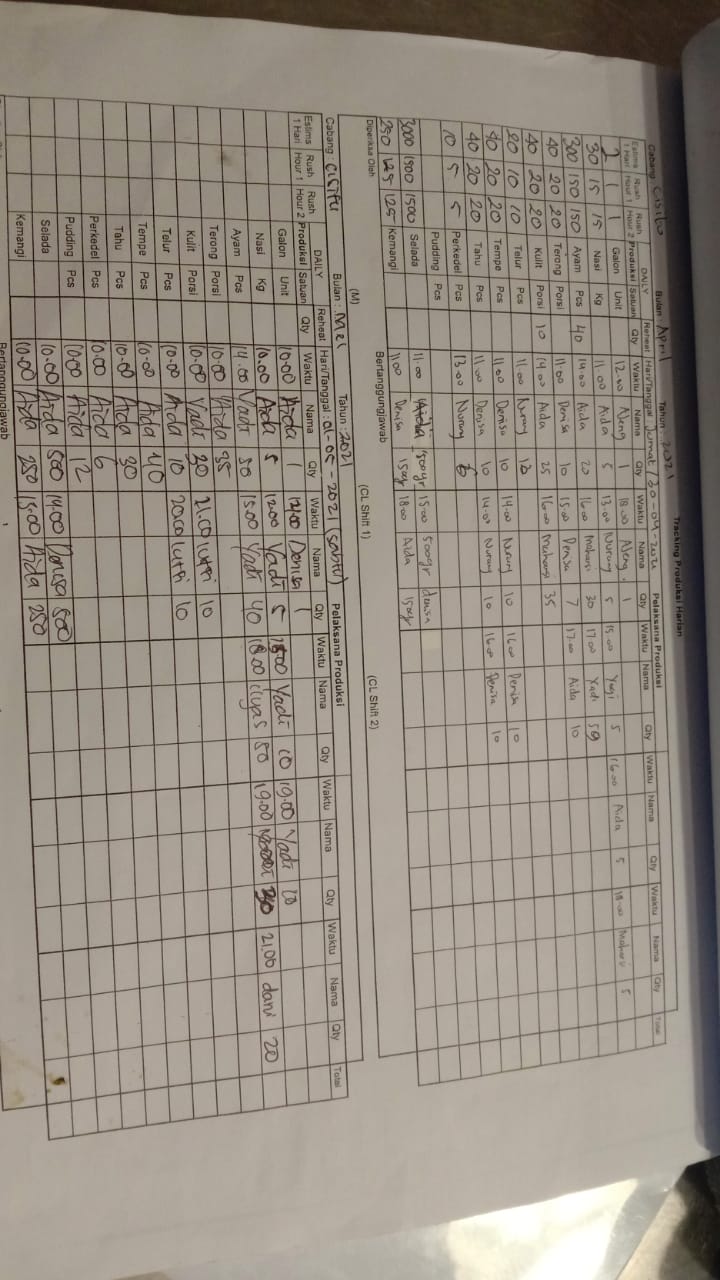 Tracking Produksi Harian
Cabang : Cisitu Bulan : April Tahun : 2021
Estims 1 Hari Rush Hour 1 Rush Hour 2 DAILY Produksi Satuan Reheat Qty Hari/Tanggal : Jumat / 30-04-2021 Pelaksana Produksi
Waktu Nama Qty Waktu Nama Qty Waktu Nama Qty Waktu Nama Qty Waktu Nama Qty Total
1 1 Galon Unit 12.00 Ajeng 1 18.00 Ajeng 1
30 15 15 Nasi Kg 11.00 Aida 5 13.00 Nurary 5 15.00 5 16.00 Aida 5 18.00 5
300 150 150 Ayam Pcs 40 14.00 Aida 20 16.00 30 17.00 Yadi 59
40 20 20 Terong Porsi 11.00 Denisa 10 15.00 Denisa 7 17.00 Aida 10
40 20 20 Kulit Porsi 10 14.00 Aida 25 16.00 35
20 10 10 Telur Pcs 11.00 Nurary
40 20 20 Tempe Pcs 11.00 Denisa 10 14.00 Nurary 10 16.00 Denisa 10
40 20 20 Tahu Pcs 11.00 Denisa 10 14.00 Nurary 10 16.00 Denisa 10
10 5 5 Perkedel Pcs 13.00 Nurary 6
Pudding Pcs
3000 1500 1500 Selada 11.00 Aida 500gr 15.00 500gr denisa
250 125 125 Kemangi 11.00 Denisa 150gr 18.00 Aida 150gr
Diperiksa Oleh Bertanggungjawab
(M) (CL Shift 1) (CL Shift 2)
Cabang : Cisitu Bulan : Mei Tahun : 2021
Estims 1 Hari Rush Hour 1 Rush Hour 2 DAILY Produksi Satuan Reheat Qty Hari/Tanggal : 01-05-2021 (sabtu) Pelaksana Produksi
Waktu Nama Qty Waktu Nama Qty Waktu Nama Qty Waktu Nama Qty Waktu Nama Qty Total
Galon Unit 10.00 Aida 1 12.00 Denisa 1
Nasi Kg 10.00 Aida 5 12.00 Yadi 5 15.00 Yadi 10 19.00 Yadi 10
Ayam Pcs 14.00 Yadi 50 15.00 Yadi 40 18.00 ilyas 50 19.00 30 21.00 dani 20
Terong Porsi 10.00 Aida 35
Kulit Porsi 10.00 Yadi 30 21.00 lutfi 10
Telur Pcs 10.00 Aida 10 20.00 lutfi 10
Tempe Pcs 10.00 Aida 40
Tahu Pcs 10.00 Aida 30
Perkedel Pcs 10.00 Aida 6
Pudding Pcs 10.00 Aida 12
Selada 10.00 Aida 500 14.00 Denisa 500
Kemangi 10.00 Aida 250 15.00 Aida 250
Bertanggungjawab